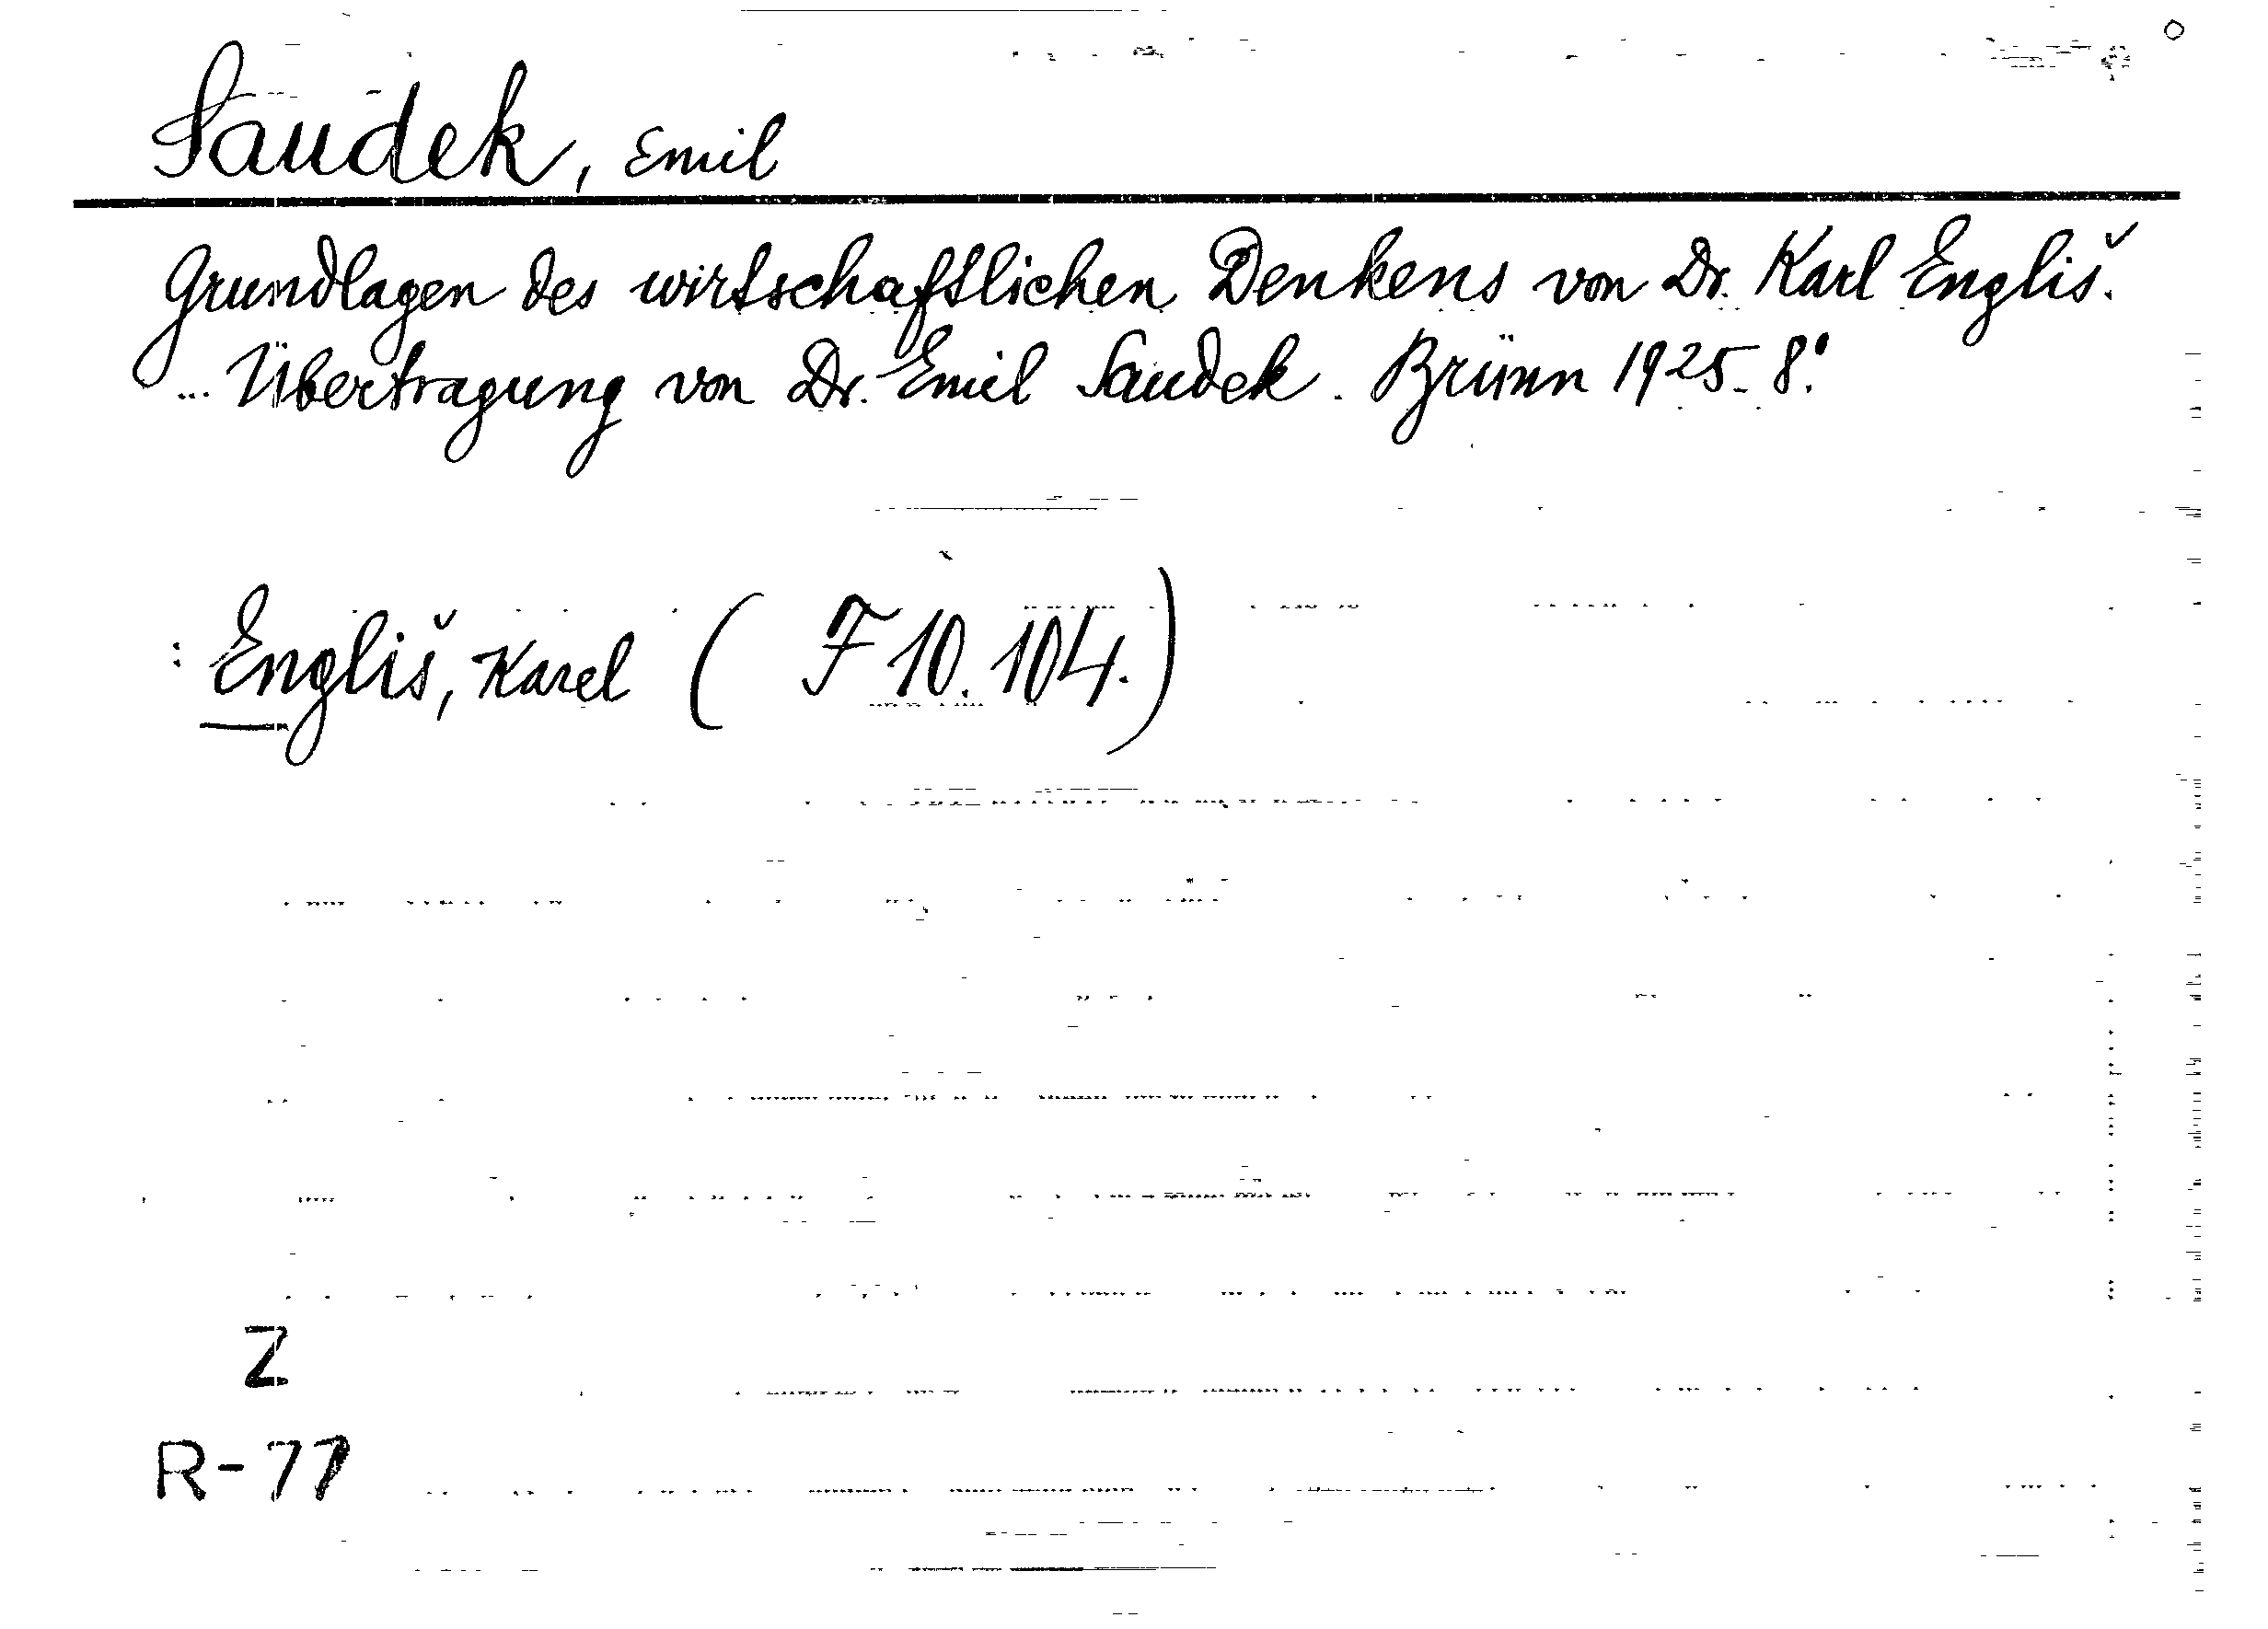 Saudek, Emil
Grundlagen des wirtschaftlichen Denkens von Dr. Karl Engliš.
... Übertragung von Dr. Emil Saudek. Brünn 1925. 8°.
: Engliš, Karel ( F 10.104.)
Z
R-77